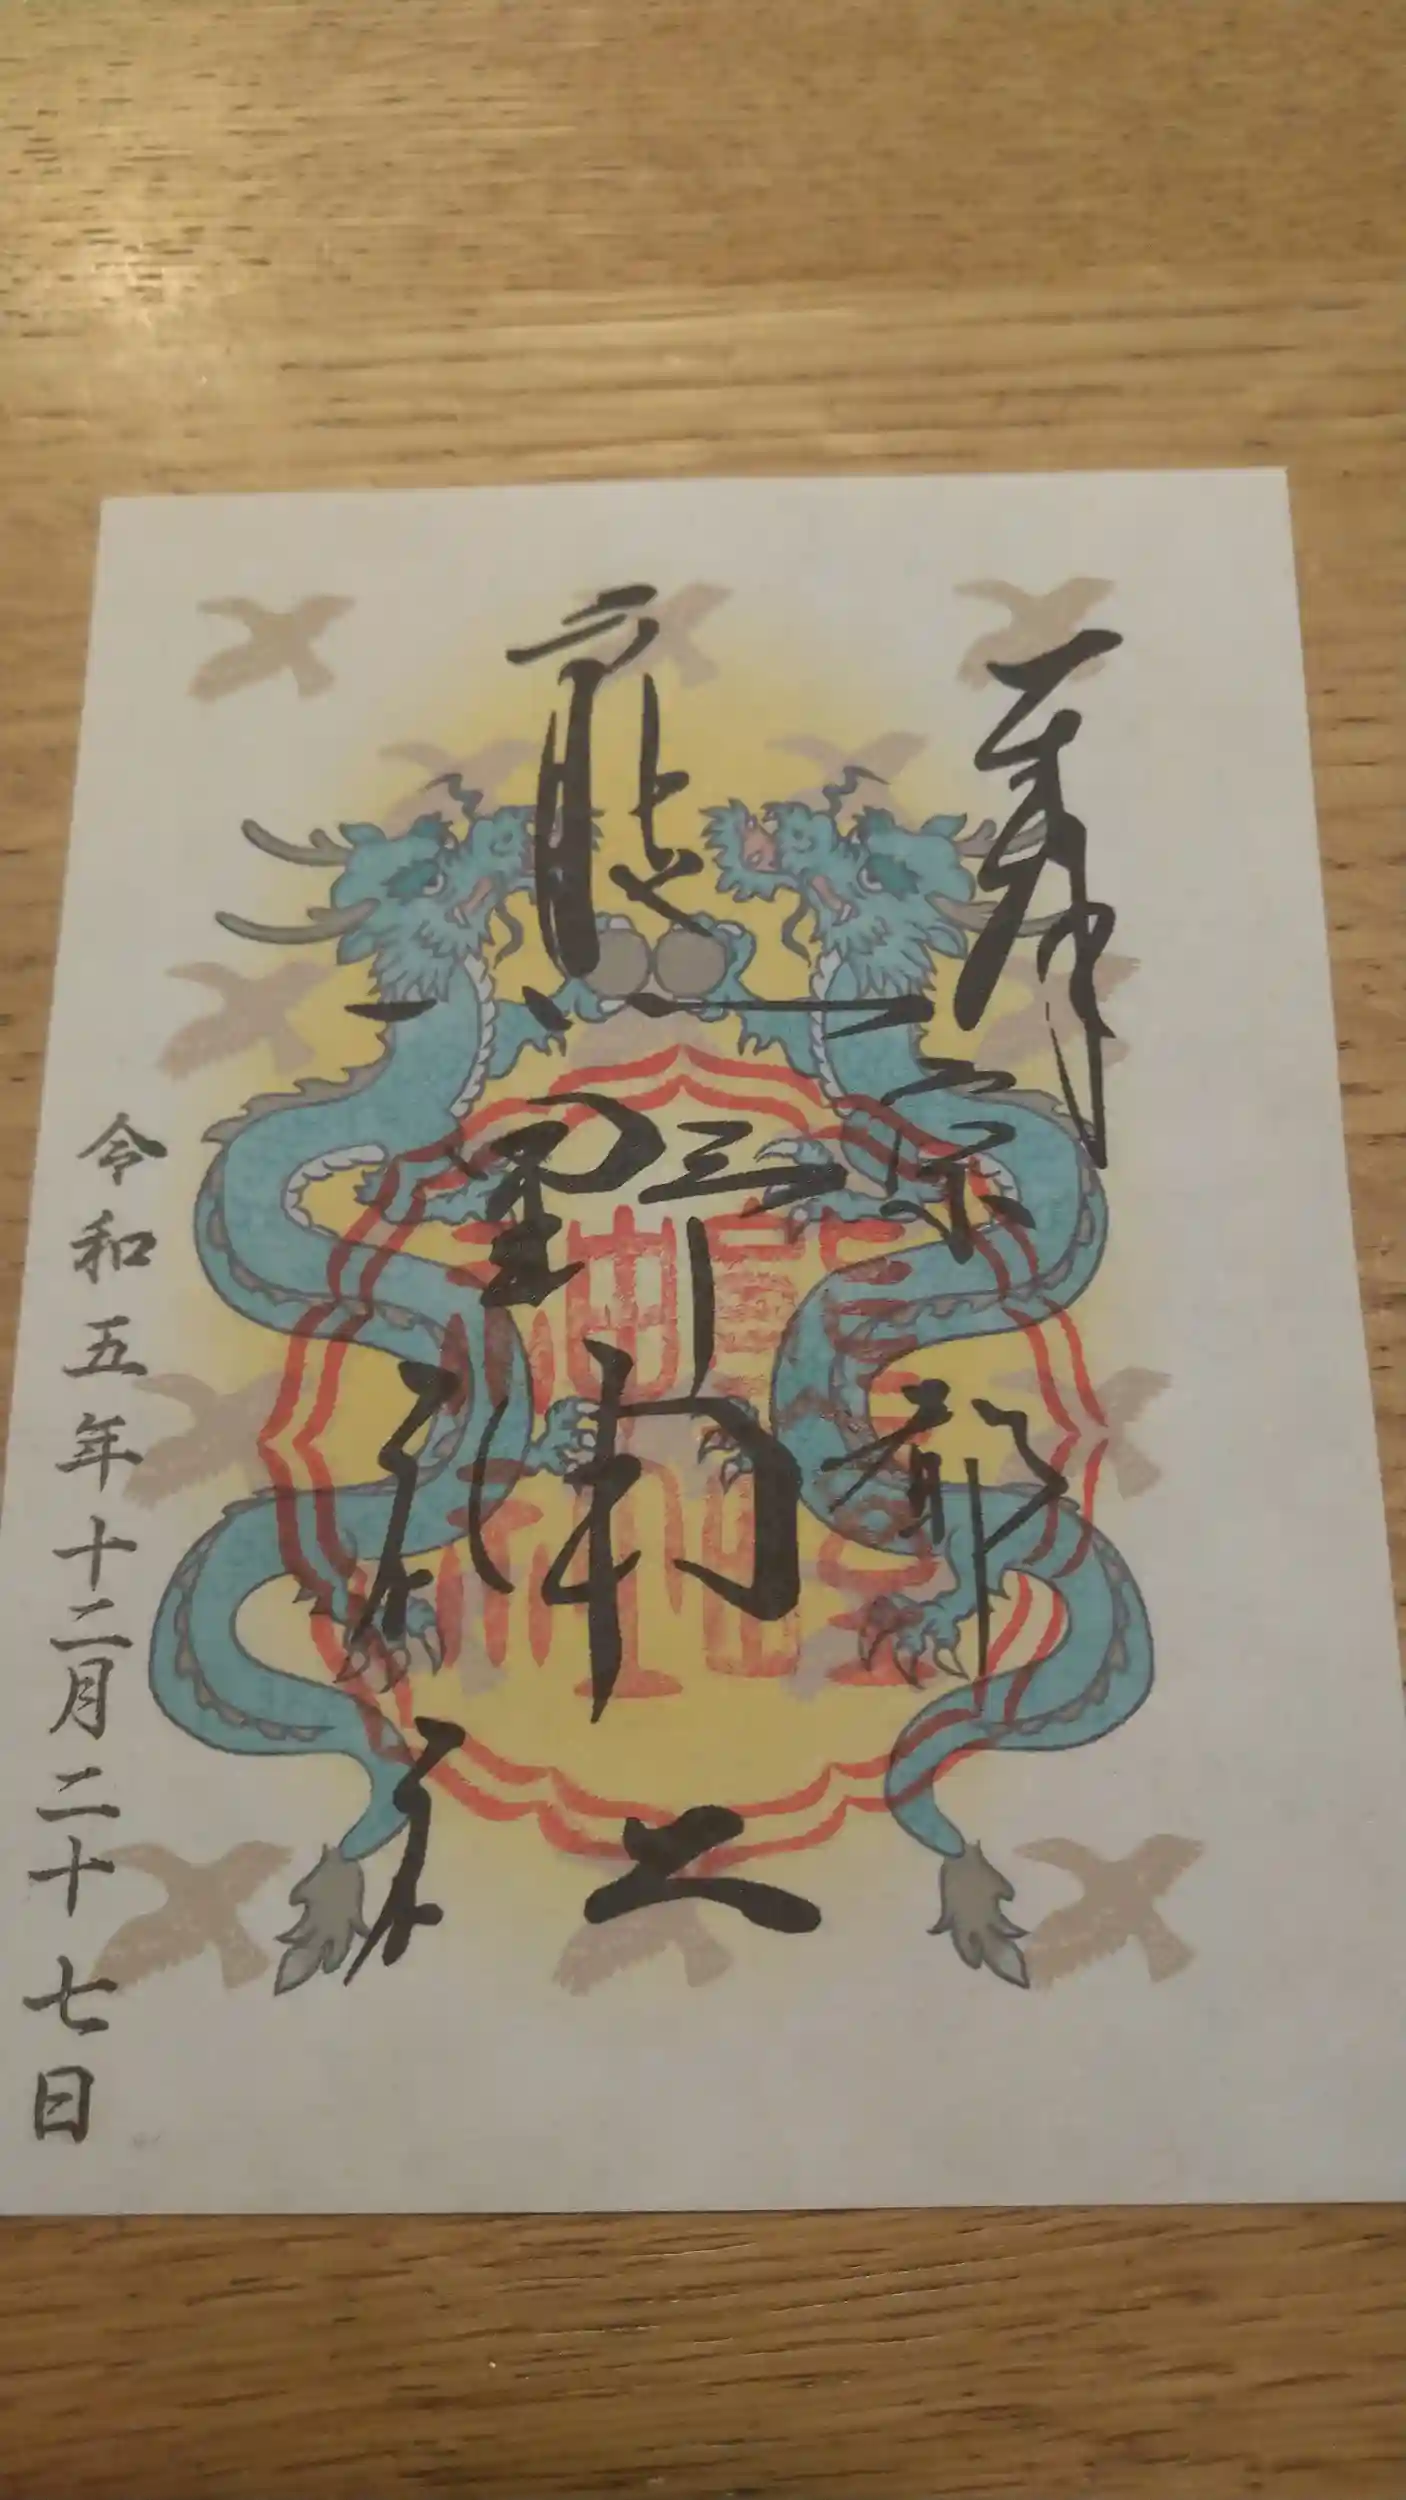 奉拝
京都
熊野神社
令和五年十二月二十七日